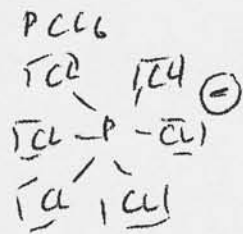 PCl6
|Cl |Cl|
|Cl - P - Cl| ⊖
|Cl |Cl|